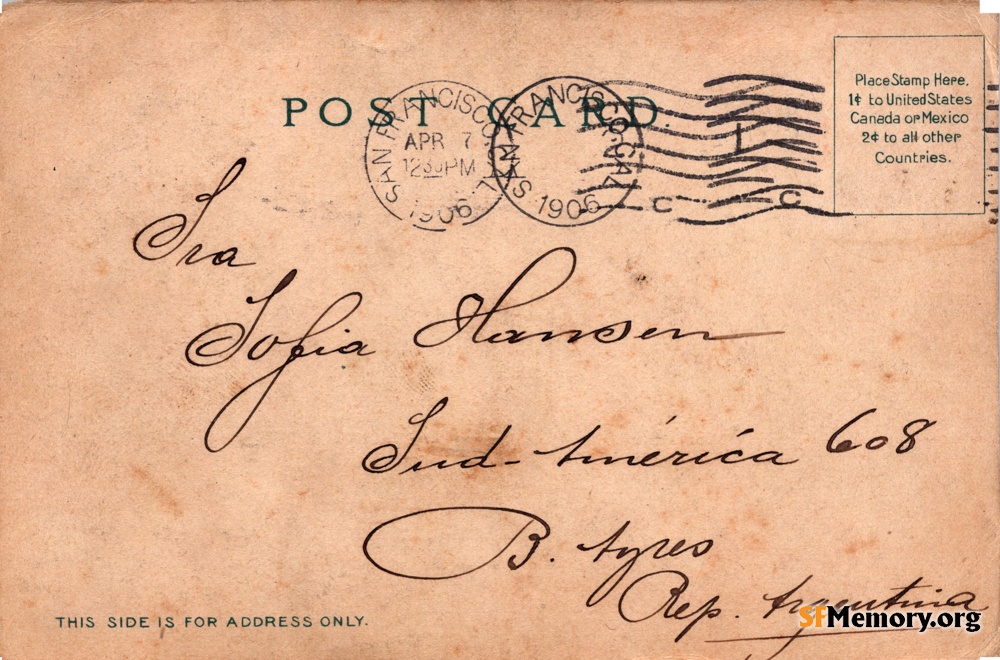 POST CARD
SAN FRANCISCO, CAL.
APR 7
12 30 PM
1906
SAN FRANCISCO, CAL.
1906
C C
Place Stamp Here.
1¢ to United States
Canada or Mexico
2¢ to all other
Countries.
Sra
Sofia Hansen
Sud-América 608
B. Ayres
Rep. Argentina
THIS SIDE IS FOR ADDRESS ONLY.
SFMemory.org